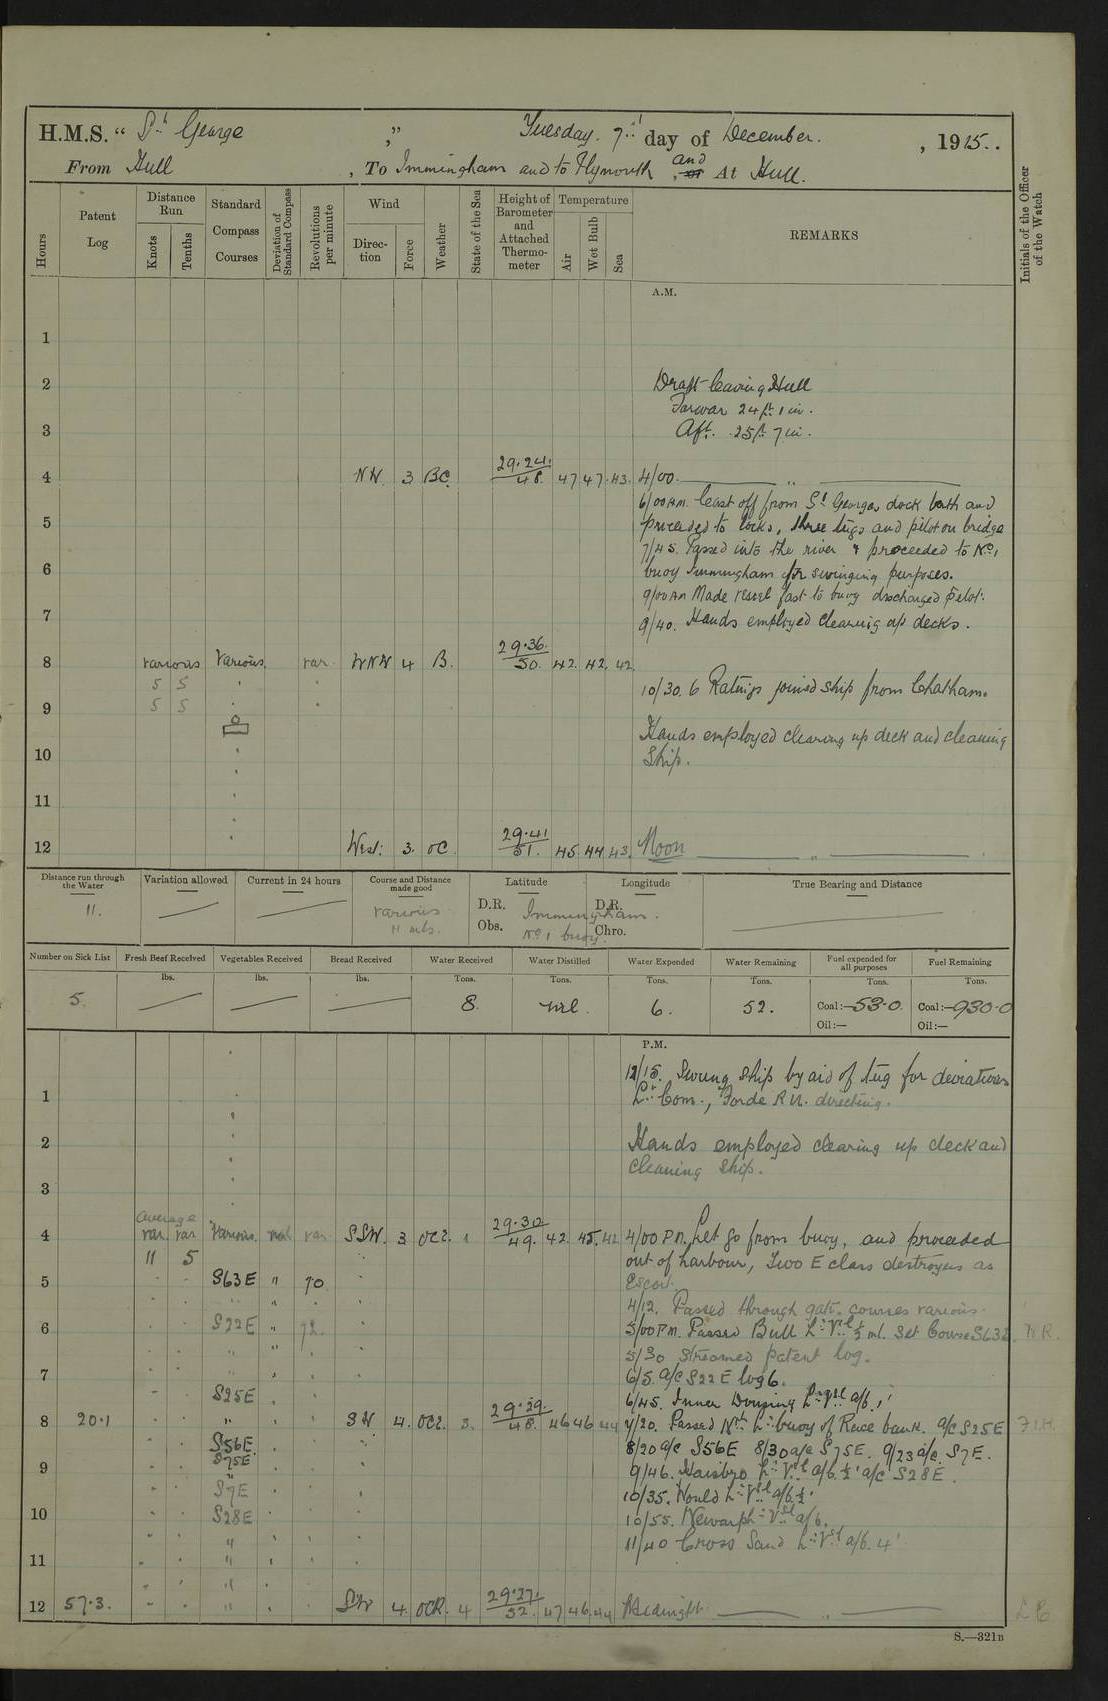 H.M.S. “ St George ” Tuesday. 7th day of December. , 1915..
From Hull , To Immingham and to Plymouth , and or At Hull.
Hours
Patent Log
Distance Run
Knots
Tenths
Standard Compass Courses
Deviation of Standard Compass
Revolutions per minute
Wind
Direction
Force
Weather
State of the Sea
Height of Barometer and Attached Thermometer
Temperature
Air
Wet Bulb
Sea
REMARKS
Initials of the Officer of the Watch
A.M.
1
2 Draft leaving Hull
Forwar 24 ft 1 in.
3 Aft. 25 ft 7 in.
4 NW. 3 BC. 29.24. 48. 47 47. 43. 4/00. ,,
6/00 AM. Cast off from St Georges dock berth and
5 proceeded to locks, three tugs and pilot on bridge
7/45. Passed into the river & proceeded to No. 1
6 buoy Immingham for swinging purposes.
9/00 AM Made vessel fast to buoy discharged pilot.
7 9/40. Hands employed clearing up decks.
8 various Various. var. WNW 4 B. 29.36. 50. 42. 42. 42.
5 5 10/30. 6 Ratings joined ship from Chatham.
9 5 5
Hands employed clearing up deck and cleaning
10 Ship.
11
12 West: 3. OC. 29.41 51. 45. 44 43. Noon ,,
Distance run through the Water
11.
Variation allowed
Current in 24 hours
Course and Distance made good
various
11 mls.
Latitude
D.R.
Obs.
Longitude
D.R.
Chro.
Immingham.
No 1 buoy.
True Bearing and Distance
Number on Sick List
5.
Fresh Beef Received
lbs.
Vegetables Received
lbs.
Bread Received
lbs.
Water Received
Tons.
8.
Water Distilled
Tons.
nil.
Water Expended
Tons.
6.
Water Remaining
Tons.
52.
Fuel expended for all purposes
Tons.
Coal:—53.0.
Oil:—
Fuel Remaining
Tons.
Coal:—930.0
Oil:—
P.M.
12/15. Swung ship by aid of tug for deviations
1 Lt. Com., Forde R.N. directing.
2 Hands employed clearing up deck and
cleaning ship.
3
average
4 var. var Various. var. SSW. 3 OCR. 29.30 49. 42. 45. 42 4/00 PM. Let go from buoy, and proceeded
11 5 out of harbour, Two E class destroyers as
5 S63E " 70 Escort.
4/12. Passed through gate. courses various.
6 S22E " 72. 5/00 PM. Passed Bull Lt Vsl ½ ml. Set Course S63E
5/30 Streamed patent log.
7 6/5. A/C S22E log 6.
S25E 6/45. Inner Dowsing Lt Vsl a/b. 1'
8 20.1 " SW. 4. OCR. 3. 29.29. 48. 46 46 44 7/20. Passed Nth Lt buoy of Race bank. A/C S25E
S56E 8/20 A/C S56E 8/30 a/c S75E. 9/23 A/C. S7E.
S75E
9 " 9/46. Haisbro Lt Vsl a/b ½' A/C S28E.
S7E 10/35. Would Lt Vsl a/b ½'
10 S28E 10/55. Newarp Lt Vsl a/b.
" 11/40 Cross Sand Lt Vsl a/b. 4'
11 "
"
12 57.3. " SW 4. OCR. 4 29.27. 52. 47 46. 44 Midnight ,,
S.—321B